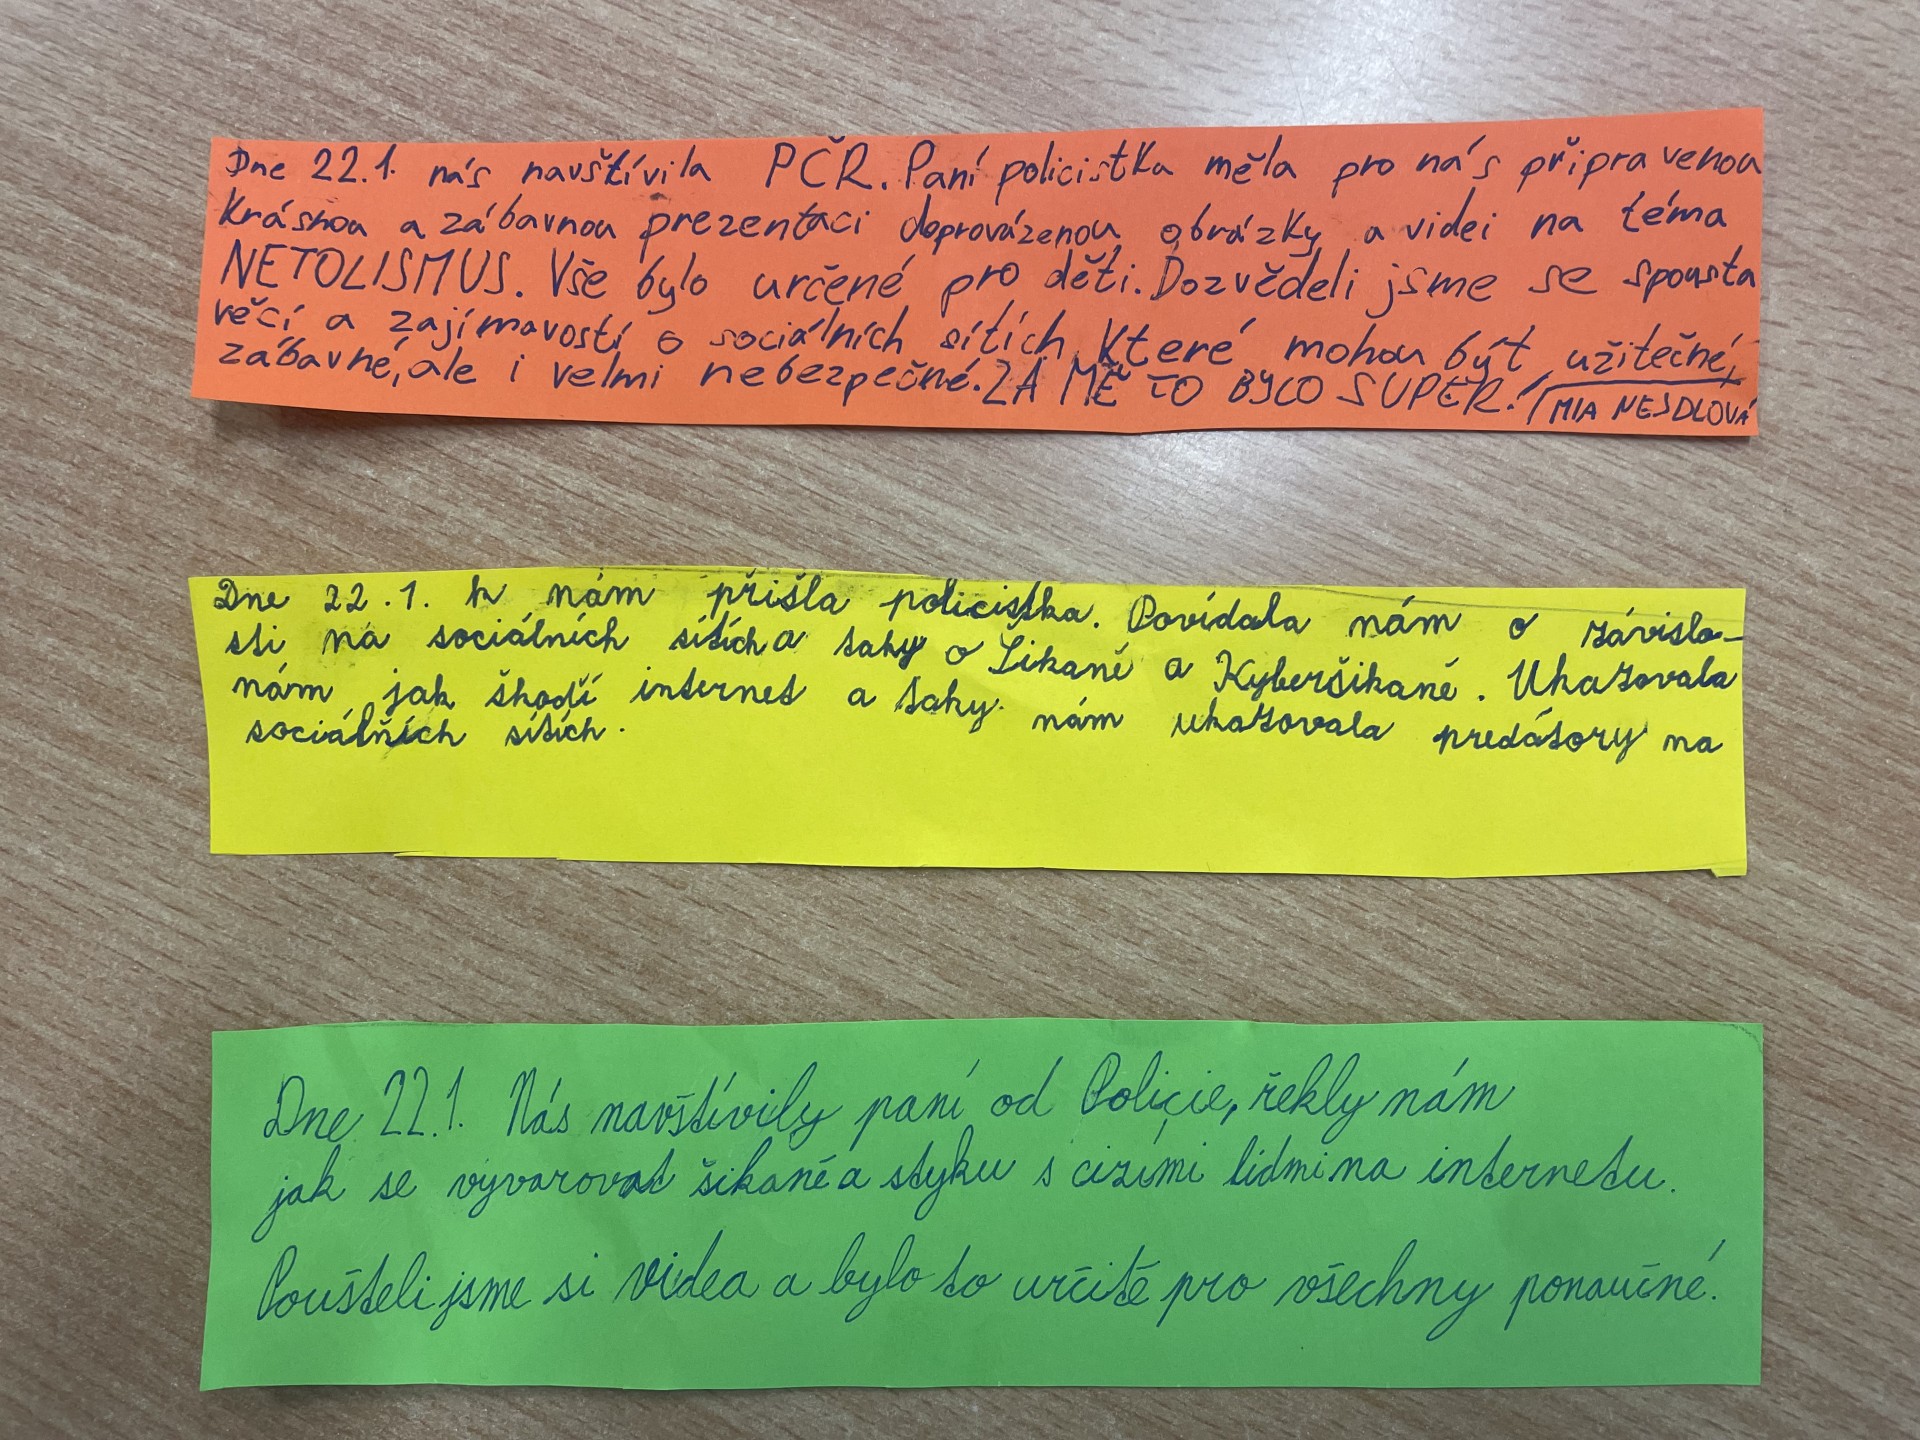 Dne 22.1. nás navštívila PČR. Paní policistka měla pro nás připravenou
krásnou a zábavnou prezentaci doprovázenou obrázky a videi na téma
NETOLISMUS. Vše bylo určené pro děti. Dozvědeli jsme se spousta
věcí a zajímavostí o sociálních sítích které mohou být užitečné,
zábavné, ale i velmi nebezpečné. ZA MĚ TO BYLO SUPER!
MIA NESDLOVÁ
Dne 22.1. k nám přišla policistka. Povídala nám o závislo-
sti na sociálních sítích a taky o šikaně a Kyberšikaně. Ukazovala
nám jak škodí internet a taky nám ukazovala predátory na
sociálních sítích.
Dne 22.1. Nás navštívily paní od Policie, řekly nám
jak se vyvarovat šikaně a styku s cizími lidmi na internetu.
Pouštěli jsme si videa a bylo to určitě pro všechny ponaučné.